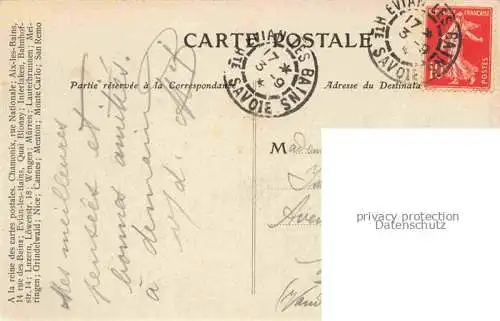 CARTE POSTALE
Partie réservée à la Correspondance
Adresse du Destinata
EVIAN LES BAINS
17
3 -9
HTE SAVOIE
EVIAN LES BAINS
17
3 -9
HTE SAVOIE
FRANÇAISE
POSTES
A la reine des cartes postales. Chamonix, rue Nationale; Aix-les-Bains,
14 rue des Bains; Evian-les-Bains, Quai Blonay; Interlaken, Bahnhof-
str. 14; Luzern, Löwenstr. 18; Wengen; Mürren; Lauterbrunnen; Mei-
ringen; Grindelwald; Nice; Cannes; Menton; Monte Carlo; San Remo
Mes meilleures
pensées et
bonnes amitiés.
à demain
Madame
Aven
privacy protection
www.ansichtskarten-center.de